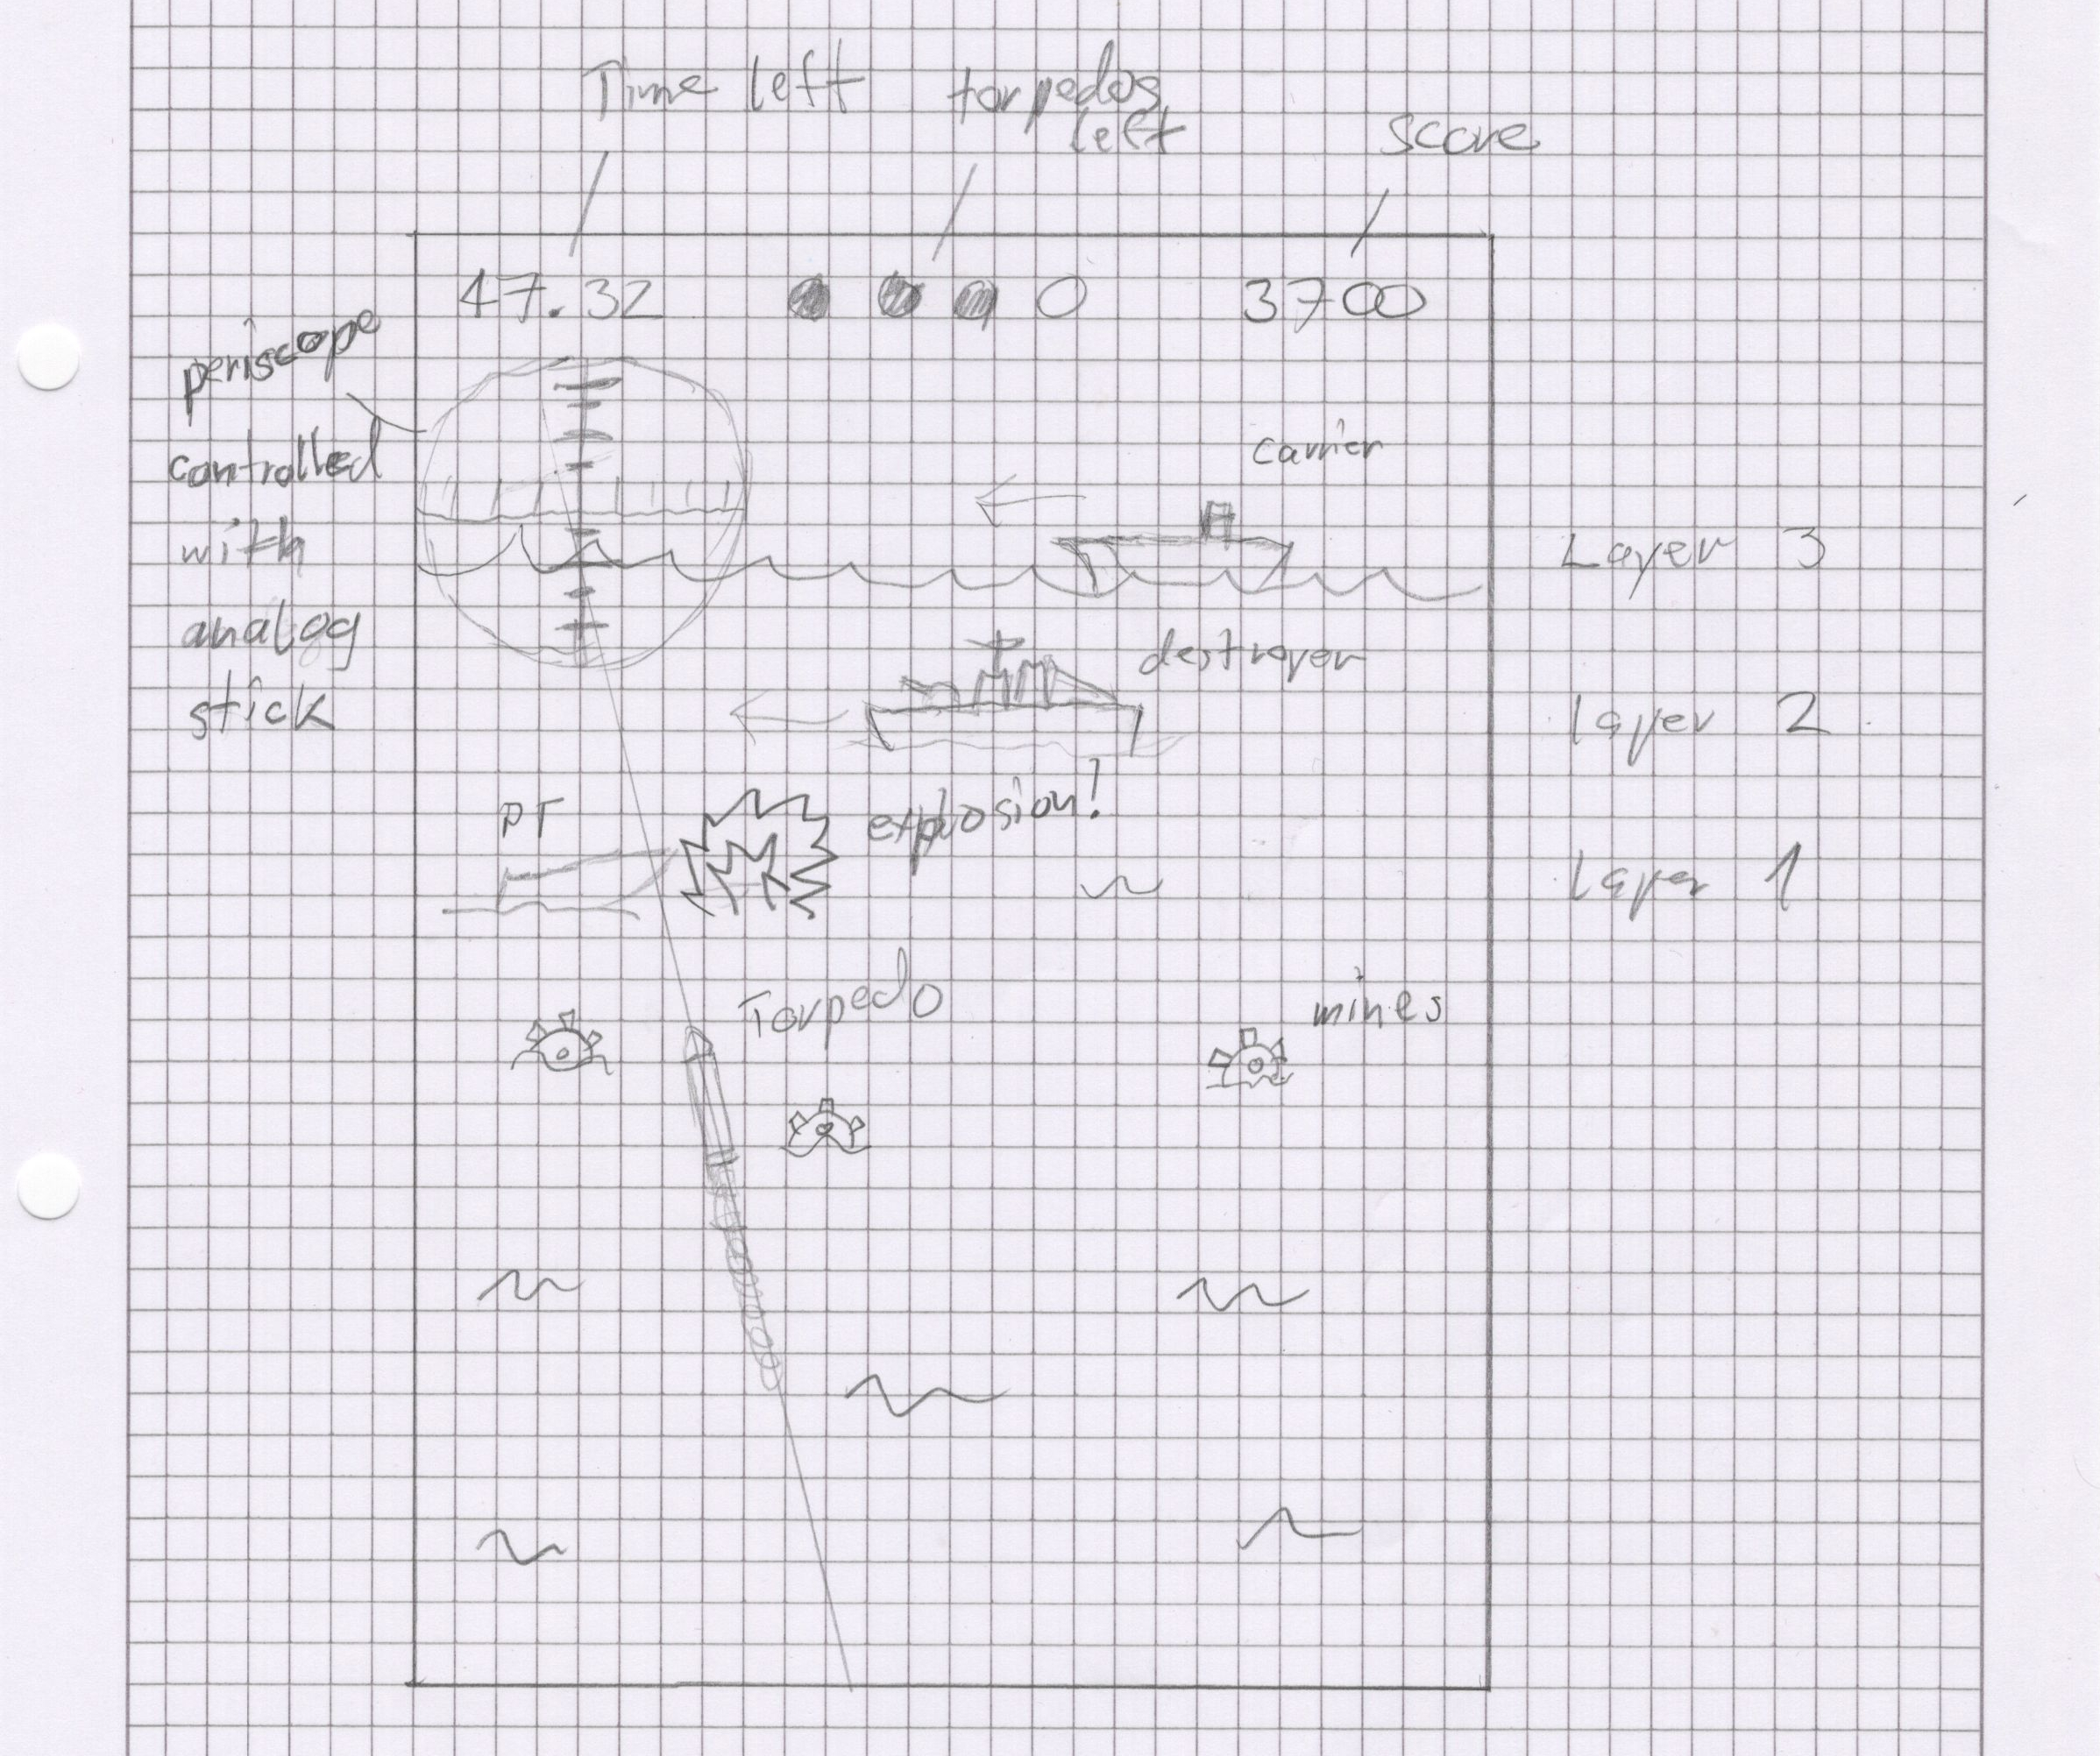 Time left
torpedos
left
score
47.32
3700
periscope
controlled
with
analog
stick
carrier
Layer 3
destroyer
Layer 2
PT
explosion!
Layer 1
Torpedo
mines